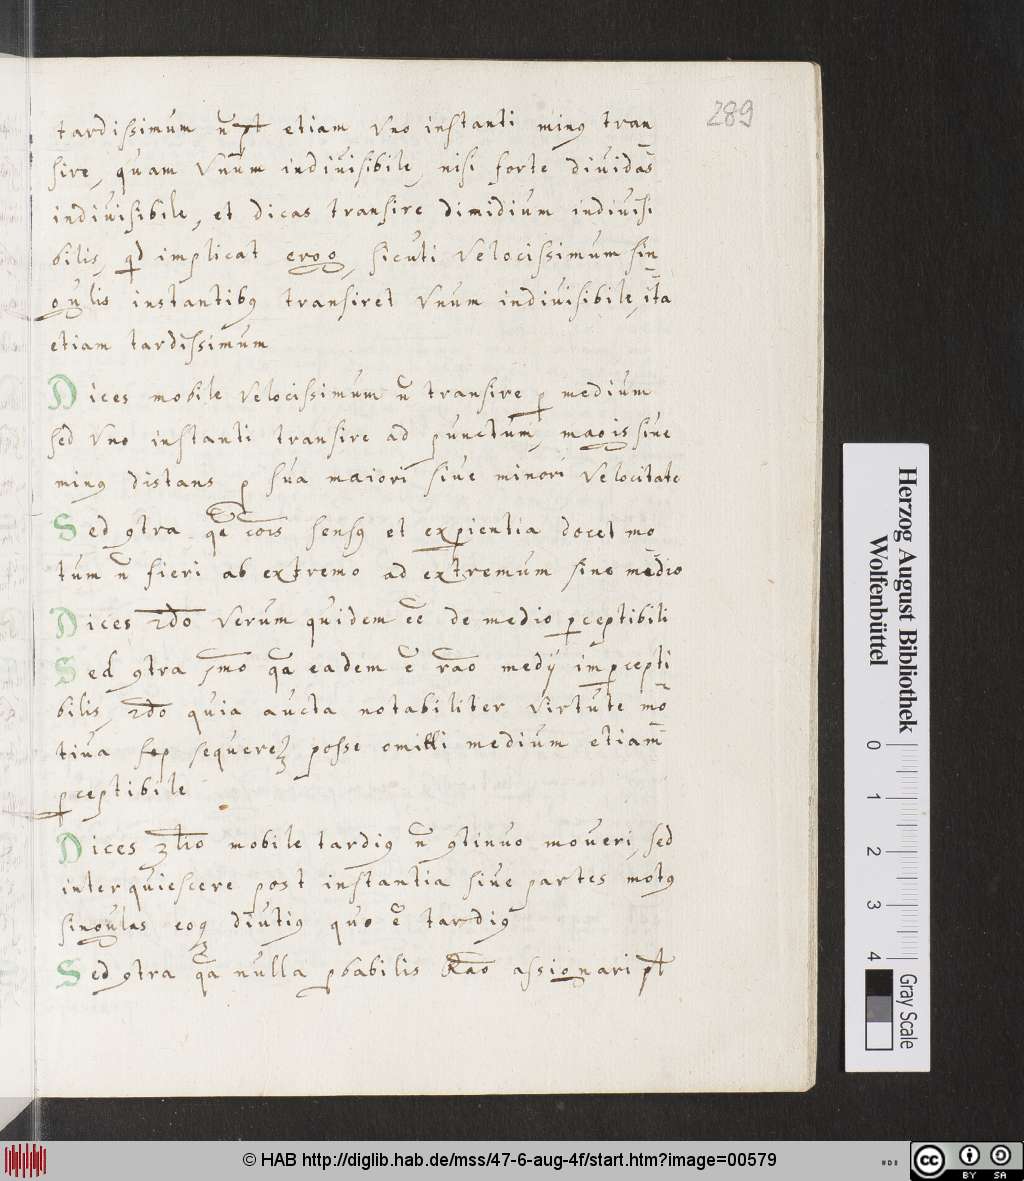 289
tardissimum n̄ pt etiam vno instanti minꝰ tran
sire, quam vnum indiuisibile, nisi forte diuidas
indiuisibile, et dicas transire dimidium indiuisi
bilis, qd implicat ergo, sicuti velocissimum sin
gulis instantibꝰ transiret vnum indiuisibile, ita
etiam tardissimum
Dices mobile velocissimum n̄ transire ꝑ medium
sed vno instanti transire ad punctum, magis siue
minꝰ distans ꝑ sua maiori siue minori velocitate
Sed ꝯtra qa cōis sensꝰ et experientia docet mo
tum n̄ fieri ab extremo ad extremum sine medio
Dices 2do verum quidem ēe de medio ꝑceptibili
Sed ꝯtra 1mo qa eadem ē rāo medij imꝑcepti
bilis, 2do quia aucta notabiliter virtute mo
tiua sequeretꝫ posse omitti medium etiam
ꝑceptibile
Dices 3tio mobile tardiꝰ n̄ ꝯtinuo moueri, sed
interquiescere post instantia siue partes motꝰ
singulas eoqꝫ diutiꝰ quo ē tardiꝰ
Sed ꝯtra qa nulla ꝓbabilis rāo assignari pt
Herzog August Bibliothek
Wolfenbüttel
0 1 2 3 4
Gray Scale
© HAB http://diglib.hab.de/mss/47-6-aug-4f/start.htm?image=00579
cc BY SA